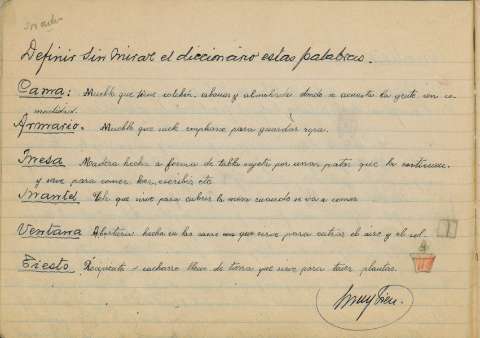 Definir sin mirar el diccionario estas palabras.
Cama: Mueble que tiene colchón, sábanas y almohadas donde se acuesta la gente con co-
modidad.
Armario. Mueble que suele emplearse para guardar ropa.
Mesa Madera hecha a forma de tabla sujeta por unas patas que la
y sirve para comer, leer, escribir, etc
Mantel Tela que sirve para cubrir la mesa cuando se va a comer
Ventana Abertura hecha en las casas que sirve para entrar el aire y el sol.
Tiesto Recipiente o cacharro lleno de tierra que sirve para tener plantas.
Muy bien.